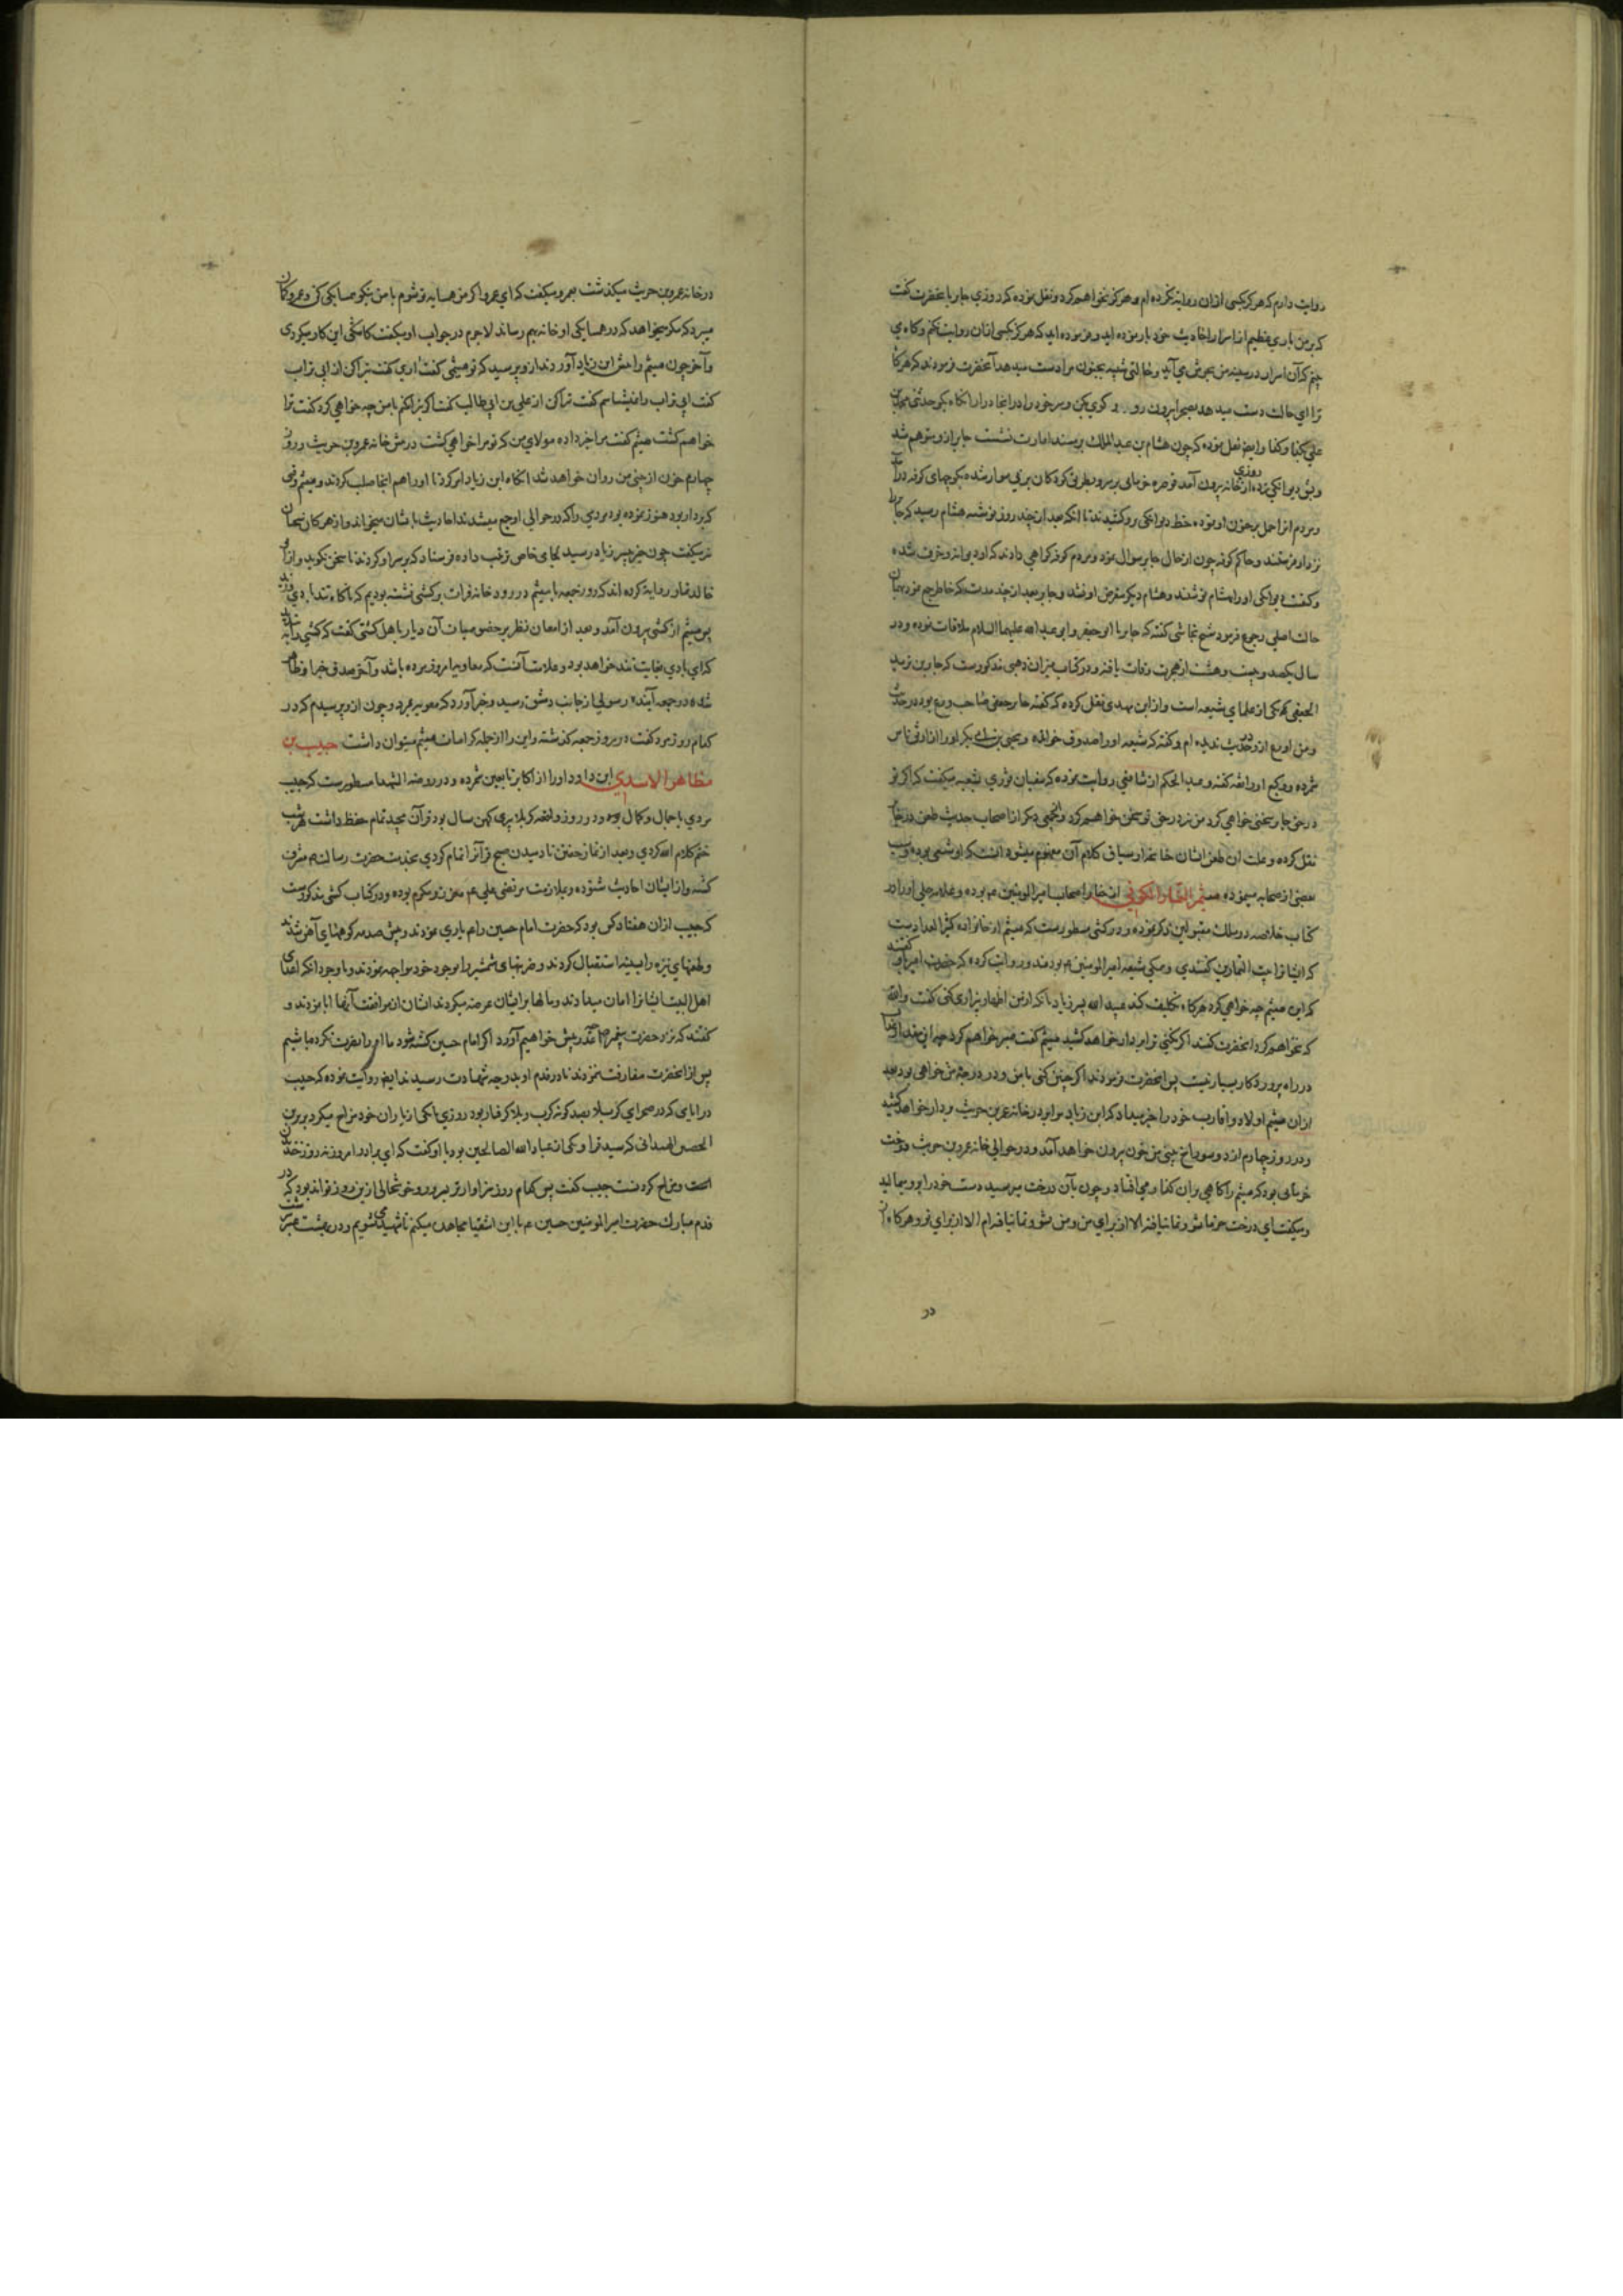 روایت دارم که هرگز بکسی ازان روایة نکرده ام و هرگز نخواهم کرد و نقل نموده که روزی جابر بآنحضرت گفت
که بر من باری عظیم از اسرار احادیث خود بار نموده اید و فرموده اید که هرگز بکسی ازان روایت نکنم و گاهی
چنم که آن اسرار در سینه من بجوش می آید و حالتی شبیه بجنون مرا دست میدهد آنحضرت فرمودند که هرگاه
ترا این حالت دست میدهد بصحرا بیرون رو و گوی بکن و سر خود را در آنجا درار آنگاه بگو حدثنی محمد بن
علی بکذا وکذا و ایضا نقل نموده که چون هشام بن عبد الملك بر مسند امارت نشست جابر ازو متوهم شد
و بنوع دیوانکی زده روزی از خانه بیرون آمد قوصره خرمای بر سر و بطریق کودکان بر نی سوار شده بکوچهای کوفه درآمد
و مردم او را حمل بر جنون او نموده خط دیوانکی برو کشیدند تا آنکه بعد از چند روز نوشته هشام رسید که جابر را
نزد او فرستند و حاکم کوفه چون از حال جابر سوال نمود مردم کوفه گواهی دادند که او دیوانه و خرف شده
و کیفیت دیوانکی او را بهشام نوشتند و هشام دیگر متعرض او نشد و جابر بعد از چند مدت که خاطر جمع نمود بهمان
حالت اصلی رجوع فرمود شیخ نجاشی گفته که جابر با ابو جعفر و ابو عبد الله علیهما السلام ملاقات نموده و در
سال یکصد و بیست و هشت از هجرت وفات یافته و در کتاب میزان ذهبی مذکورست که جابر بن یزید
الجعفی که یکی از علمای شیعه است و از ابن مهدی نقل کرده که گفته جابر جعفی صاحب ورع بود در حدیث
و من اورع ازو در حدیث ندیده ام و گفته که شیعه او را صدوق خوانده و یحیی بن ابی بکر او را از اوثق ناس
شمرده و وکیع او را ثقه گفته و عبد الحکم از شافعی روایت نموده که سفیان ثوری بشعبه میگفت که اگر تو
در حق جابر سخنی خواهی کرد من نیز در حق تو سخن خواهم کرد و آنچه بعضی دیگر از اصحاب حدیث طعن در جابر
نقل کرده و علت آن طعن ایشان چنانچه از سیاق کلام آن مفهوم میشود آنست که او شیعی بوده و سب
بعضی از صحابه مینموده میثم التمار الکوفی از خاص اصحاب امیر المومنین ع م بوده و علامه حلی او را در
کتاب خلاصه در سلك مقبولین ذکر نموده و در کشی مسطورست که میثم از خانواده کثیر العدادست
که ایشانرا بیت التمارین گفتندی و همگی شیعه امیر المومنین ع م بودند و روایت کرده که حضرت امیر باو گفتند
که ای میثم چه خواهی کرد هرگاه تکلیف کند عبید الله پسر زیاد بآنکه از من اظهار بیزاری کنی گفت والله
که نخواهم کرد آنحضرت گفتند اگر نکنی ترا بر دار خواهد کشید میثم گفت صبر خواهم کرد چه این مقدار
در راه پروردکار بسیار نیست پس آنحضرت فرمودند اگر چنین کنی با من و در درجه من خواهی بود بعد
ازان میثم اولاد و اقارب خود را خبر میداد که ابن زیاد مرا بر در خانه عمر بن حریث بر دار خواهد کشید
و در روز چهارم از دو سوراخ بینی من خون بیرون خواهد آمد و در حوالی خانه عمرو بن حریث درخت
خرمائی بود که میثم را گاهی بران گذار می افتاد و چون بآن درخت میرسید دست خود را برو میمالید
و میگفت ای درخت خرما نشو و نما نیافته الا از برای من و من نشو و نما نیافته ام الا از برای تو و هرگاه از
در
در خانه عمرو بن حریث میگذشت بعمرو میگفت که ای عمرو اگر من همسایه تو شوم با من نیکو همسایکی کن و عمرو گمان
میبرد که مگر میخواهد که در همسایکی او خانه بهم رساند لاجرم در جواب او میگفت کاشکی این کار میکردی
و آخر چون میثم را پیش ابن زیاد آوردند ازو پرسید که تو میثمی گفت آری گفت تبرا کن از ابی تراب
گفت ابی تراب را نمیشناسم گفت تبرا کن از علی بن ابی طالب گفت اگر تبرا نکنم با من چه خواهی کرد گفت ترا
خواهم کشت میثم گفت مرا خبر داده مولای من که تو مرا خواهی کشت در پیش خانه عمرو بن حریث و روز
چهارم خون از بینی من روان خواهد شد آنگاه ابن زیاد امر کرد تا او را هم آنجا صلب کردند و میثم وقتی
که بر دار بود هنوز نمرده بود مردمی را که در حوالی او جمع میشدند احادیث بایشان میخواند و از هر کان سخنان
نیز میگفت چون خبر بپسر زیاد رسید لجامی خاص ترتیب داده فرستاد که بر سر او کردند تا سخن نگوید و از ابو
خالد تمار روایة کرده اند که روز جمعه با میثم در رودخانه فرات بر کشتی نشسته بودیم که ناگاه تند بادی وزید
پس میثم از کشتی بیرون آمد و بعد از امعان نظر بر خصوصیات آن دیار باهل کشتی گفت که کشتی را ببندید
که این بادی بغایت تند خواهد بود و علامت آنست که معاویه امروز مرده باشد و آخر صدق خبر او ظاهر
شد و در جمعه آینده رسولی از جانب دمشق رسید و خبر آورد که معویه بمرد و چون ازو پرسیدم که در
کدام روز مرد گفت در روز جمعه گذشته و این را از جمله کرامات میثم میتوان داشت حبیب بن
مظاهر الاسدی ابن داود او را از اکابر تابعین شمرده و در روضة الشهدا مسطورست که حبیب
مردی با جمال و کمال بوده و در روز واقعه کربلا پیری کهن سال بود و قرآن مجید تمام حفظ داشت هر شب
ختم کلام الله کردی و بعد از نماز خفتن تا دمیدن صبح قرآنرا تمام کردی بخدمت حضرت رسالت مشرف
گشته و از ایشان احادیث شنوده و بملازمت مرتضی علی ع م معزز و مکرم بوده و در کتاب کشی مذکورست
که حبیب ازان هفتاد کس بود که حضرت امام حسین را ع م یاری نمودند و پیش صدمه کوههای آهن شدند
و طعنهای نیزه را بسینه استقبال کردند و ضربتهای شمشیر را بوجود خود مواجه نمودند و با وجود آنکه اعدای
اهل البیت ایشانرا امان میدادند و مالها بر ایشان عرضه میکردند ایشان از موافقت آنها ابا نمودند و
گفتند که نزد حضرت پیغمبر چه عذر پیش خواهیم آورد اگر امام حسین کشته شود و ما او را نصرت نکرده باشیم
پس از آنحضرت مفارقت ننمودند تا در قدم او بدرجه شهادت رسیدند ایضا روایت نموده که حبیب
در ایامی که در صحرای کربلا بصد گونه کرب و بلا گرفتار بود روزی با یکی از یاران خود مزاح میکرد بریر بن
الحصین الهمدانی که سید قرا و یکی از عباد الله الصالحین بود باو گفت که ای برادر امروز نه روز خندیدن
است و مزاح کردنست حبیب گفت پس کدام روز سزاوارتر بسرور و خوشحالی ازین روز تواند بود که در
قدم مبارك حضرت امیر المومنین حسین ع م با این اشقیا مجاهده میکنیم تا شهید می شویم و در بهشت عنبر